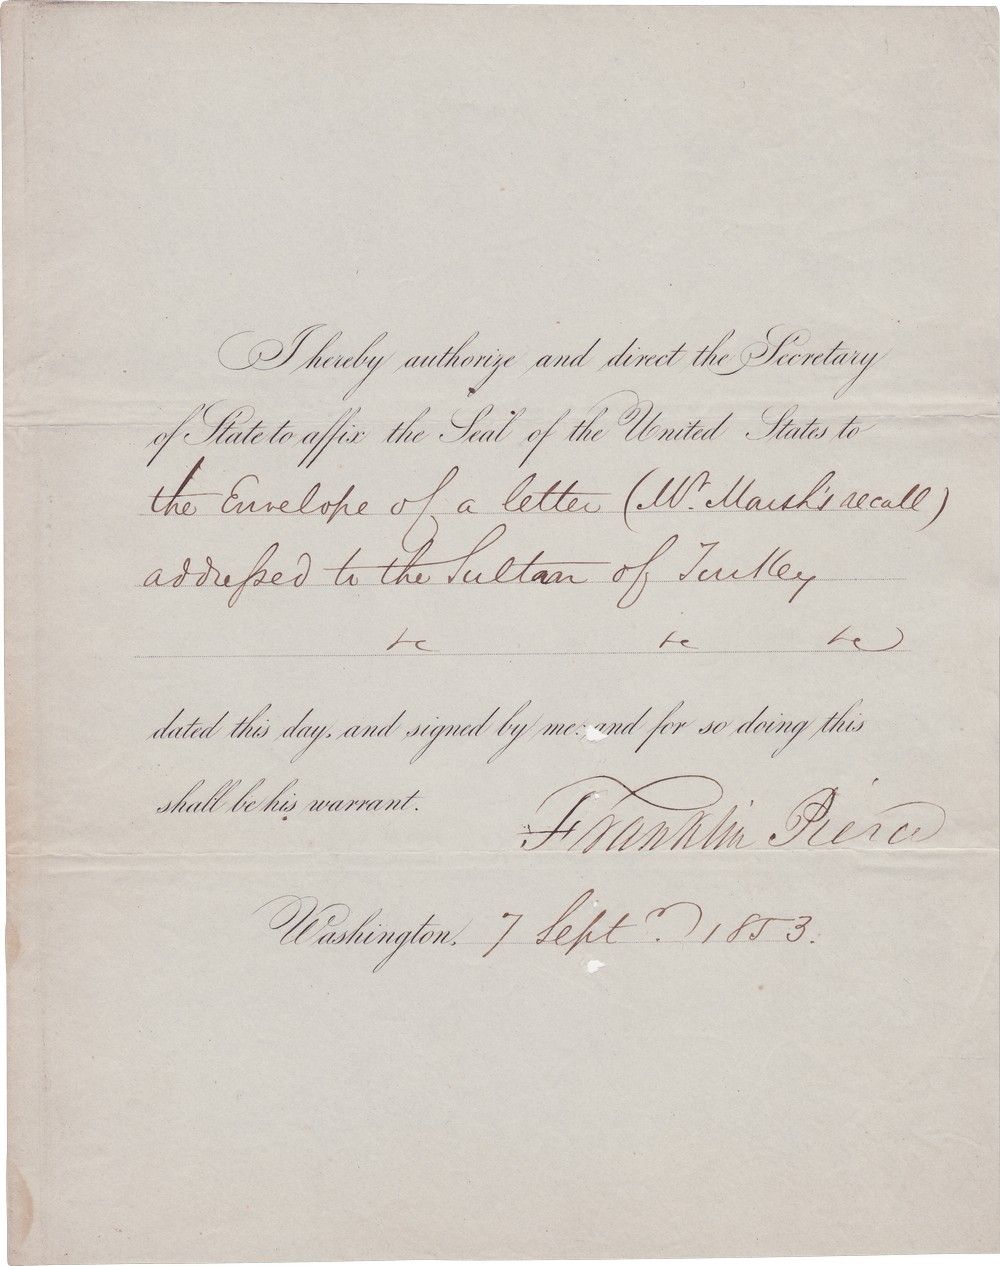 I hereby authorize and direct the Secretary
of State to affix the Seal of the United States to
the Envelope of a letter (Mr. Marsh's recall)
addressed to the Sultan of Turkey
&c &c &c
dated this day, and signed by me: and for so doing this
shall be his warrant.
Franklin Pierce
Washington, 7 Septr. 1853.